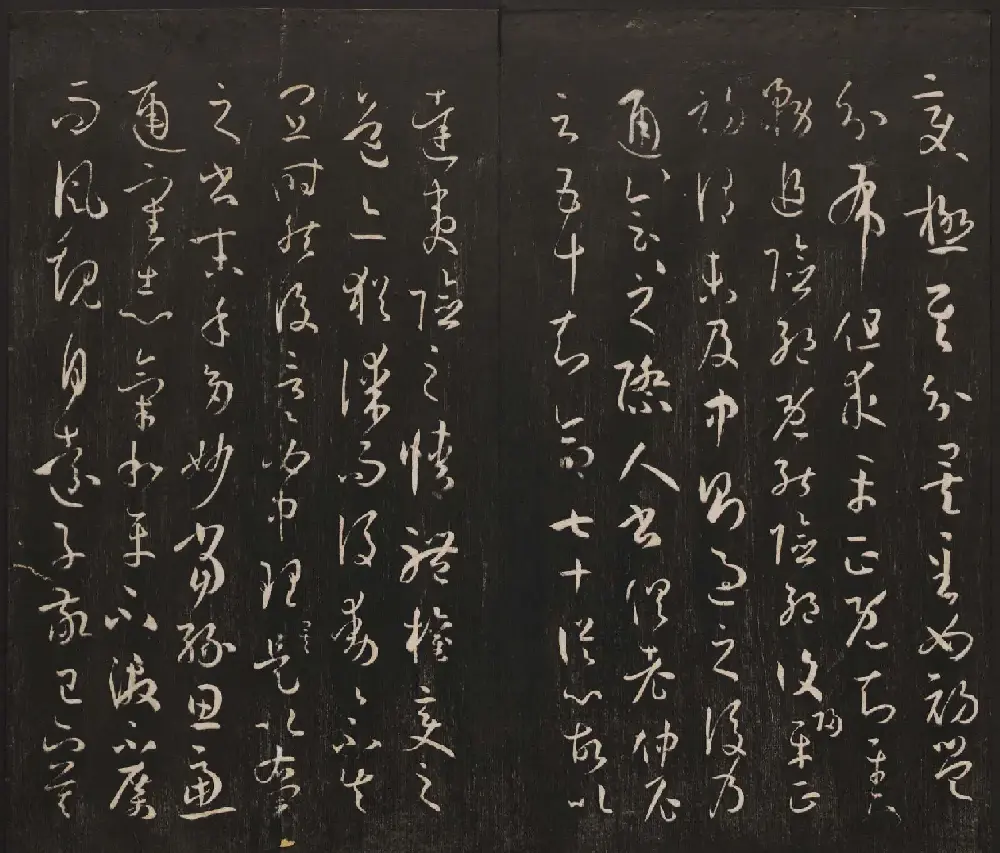 變極其分矣至如初學
分布但求平正既知平正
務追險絕既能險絕復歸平正
初謂未及中則過之後乃
通會〻〻之際人書俱老仲尼
云五十知命七十從心故以
達夷險之情體權變之
道亦猶謀而後動〻不失
宜時然後言〻必中理矣是以右軍
之書末年多妙當緣思慮
通審志氣和平不激不厲
而風規自遠子敬已下莫